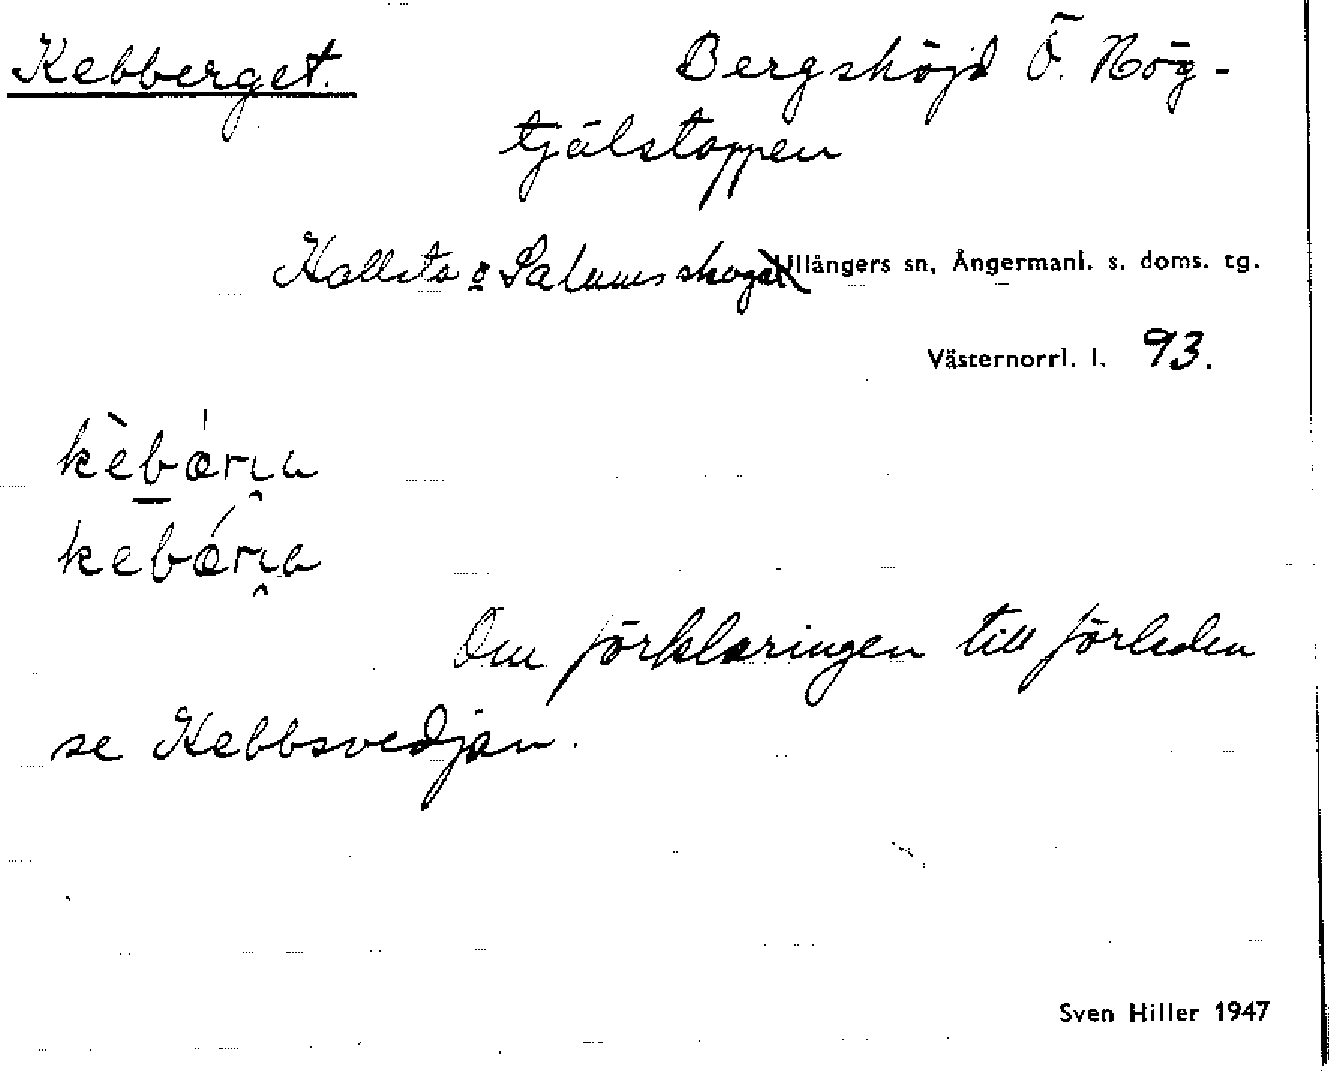 Kebberget. Bergshöjd Ö. Hög-
tjälstoppen
Kallsta o Salums skogar Ullångers sn, Ångermanl. s. doms. tg.
Västernorrl. l. 93.
Om förklaringen till förleden
se Kebbsvedjan.
Sven Hiller 1947